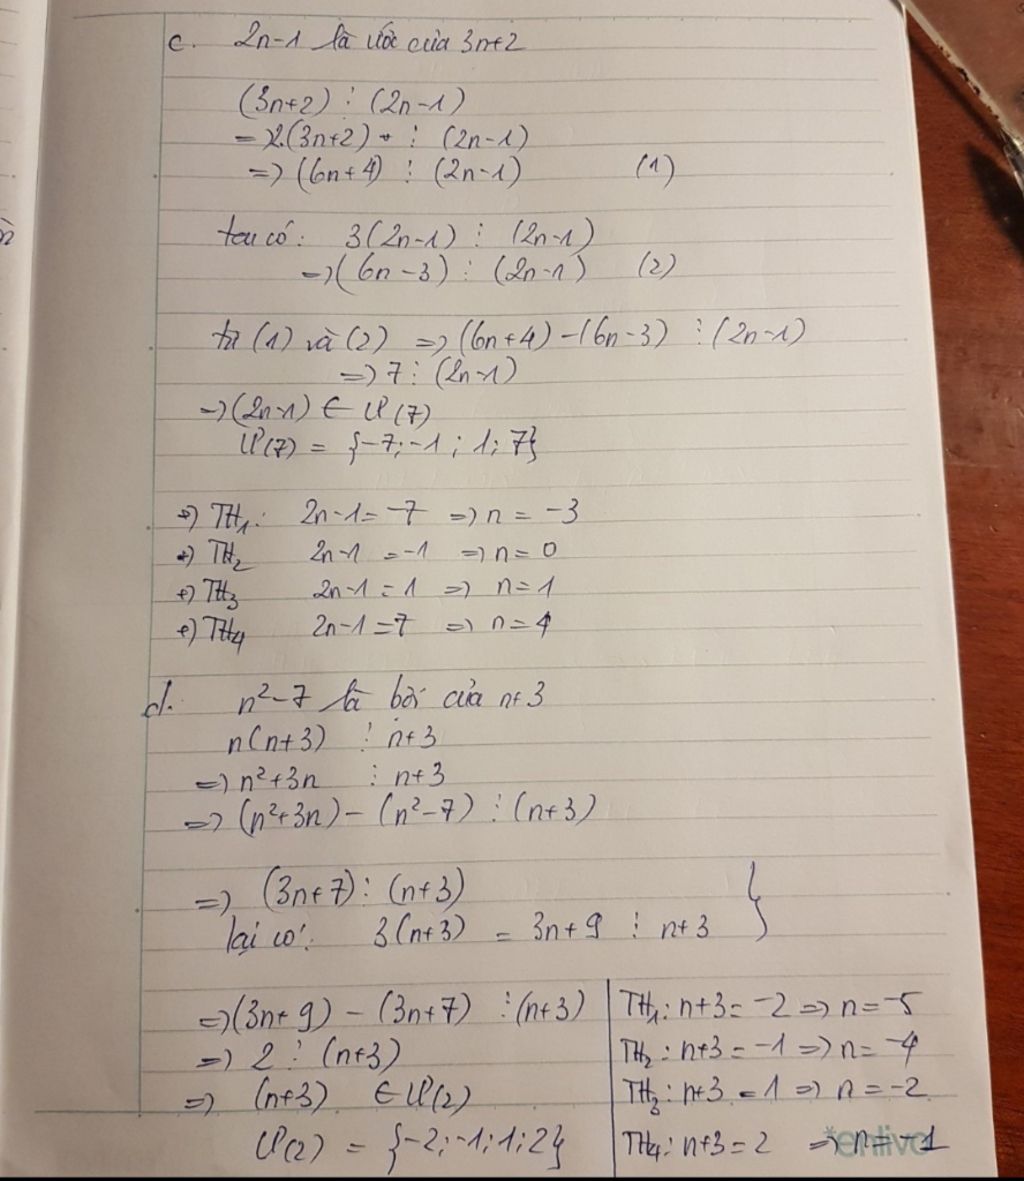 c. 2n-1 là ước của 3n+2
(3n+2) ⋮ (2n-1)
=> 2.(3n+2) ⋮ (2n-1)
=> (6n+4) ⋮ (2n-1) (1)
ta có: 3(2n-1) ⋮ (2n-1)
=> (6n-3) ⋮ (2n-1) (2)
từ (1) và (2) => (6n+4)-(6n-3) ⋮ (2n-1)
=> 7 ⋮ (2n-1)
=> (2n-1) ∈ Ư(7)
Ư(7) = {-7;-1; 1; 7}
+) TH1: 2n-1 = -7 => n = -3
+) TH2 2n-1 = -1 => n = 0
+) TH3 2n-1 = 1 => n = 1
+) TH4 2n-1 = 7 => n = 4
d. n²-7 là bội của n+3
n(n+3) ⋮ n+3
=> n²+3n ⋮ n+3
=> (n²+3n) - (n²-7) ⋮ (n+3)
=> (3n+7) ⋮ (n+3) }
lại có: 3(n+3) = 3n+9 ⋮ n+3
=> (3n+9) - (3n+7) ⋮ (n+3)
=> 2 ⋮ (n+3)
=> (n+3) ∈ Ư(2)
Ư(2) = {-2;-1;1;2}
TH1: n+3 = -2 => n = -5
TH2: n+3 = -1 => n = -4
TH3: n+3 = 1 => n = -2
TH4: n+3 = 2 => n = -1